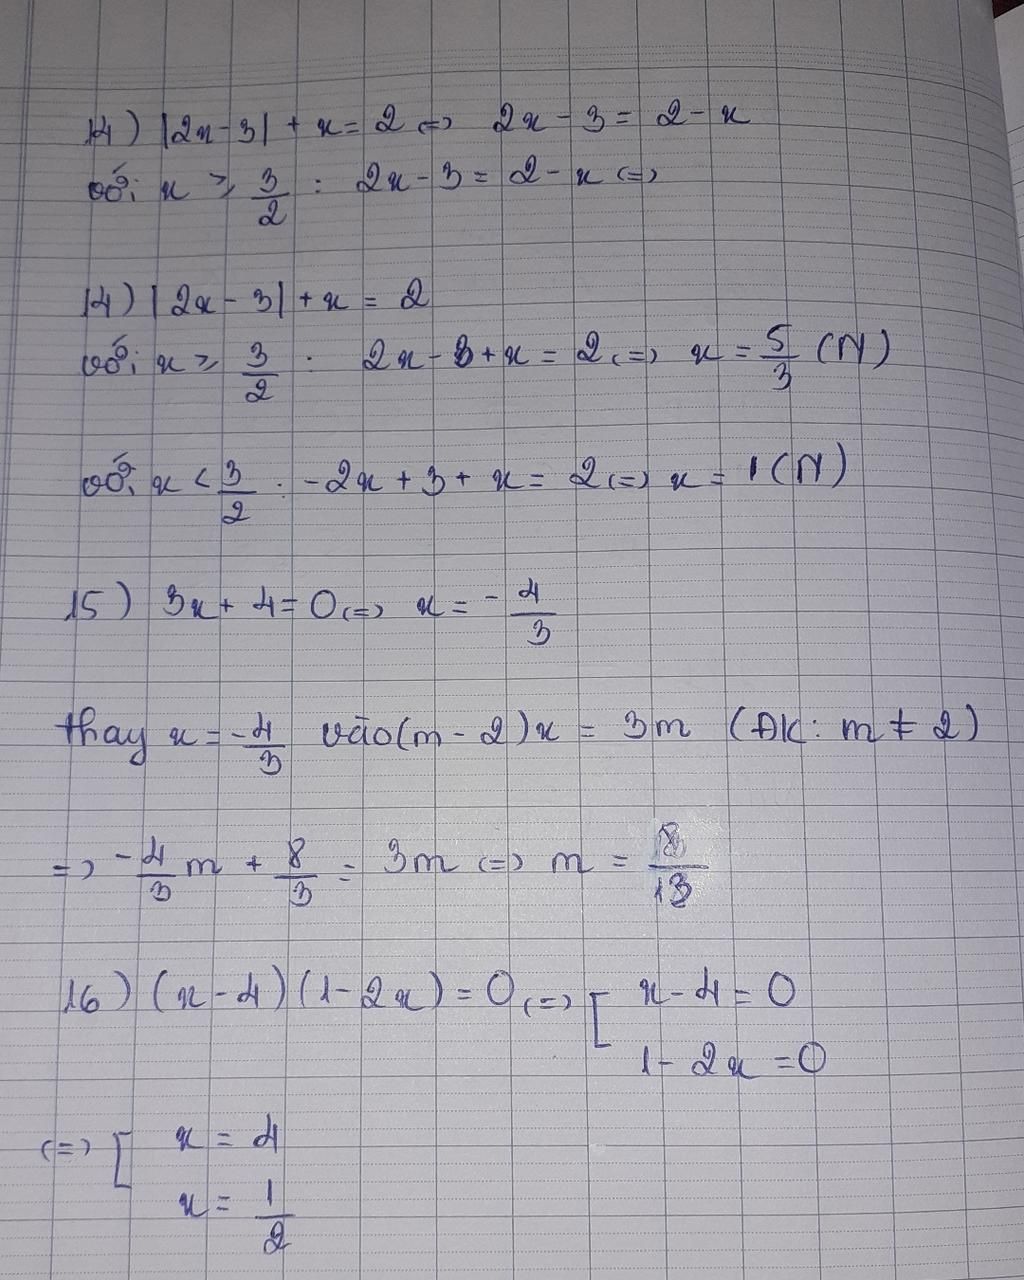 14) |2x - 3| + x = 2 <=> 2x - 3 = 2 - x
với x ≥ 3/2 : 2x - 3 = 2 - x <=>
14) |2x - 3| + x = 2
với x ≥ 3/2 : 2x - 3 + x = 2 <=> x = 5/3 (N)
với x < 3/2 : -2x + 3 + x = 2 <=> x = 1 (N)
15) 3x + 4 = 0 <=> x = -4/3
thay x = -4/3 vào (m - 2)x = 3m (ĐK: m ≠ 2)
=> -4/3 m + 8/3 = 3m <=> m = 8/13
16) (x - 4)(1 - 2x) = 0 <=> [ x - 4 = 0
1 - 2x = 0
<=> [ x = 4
x = 1/2